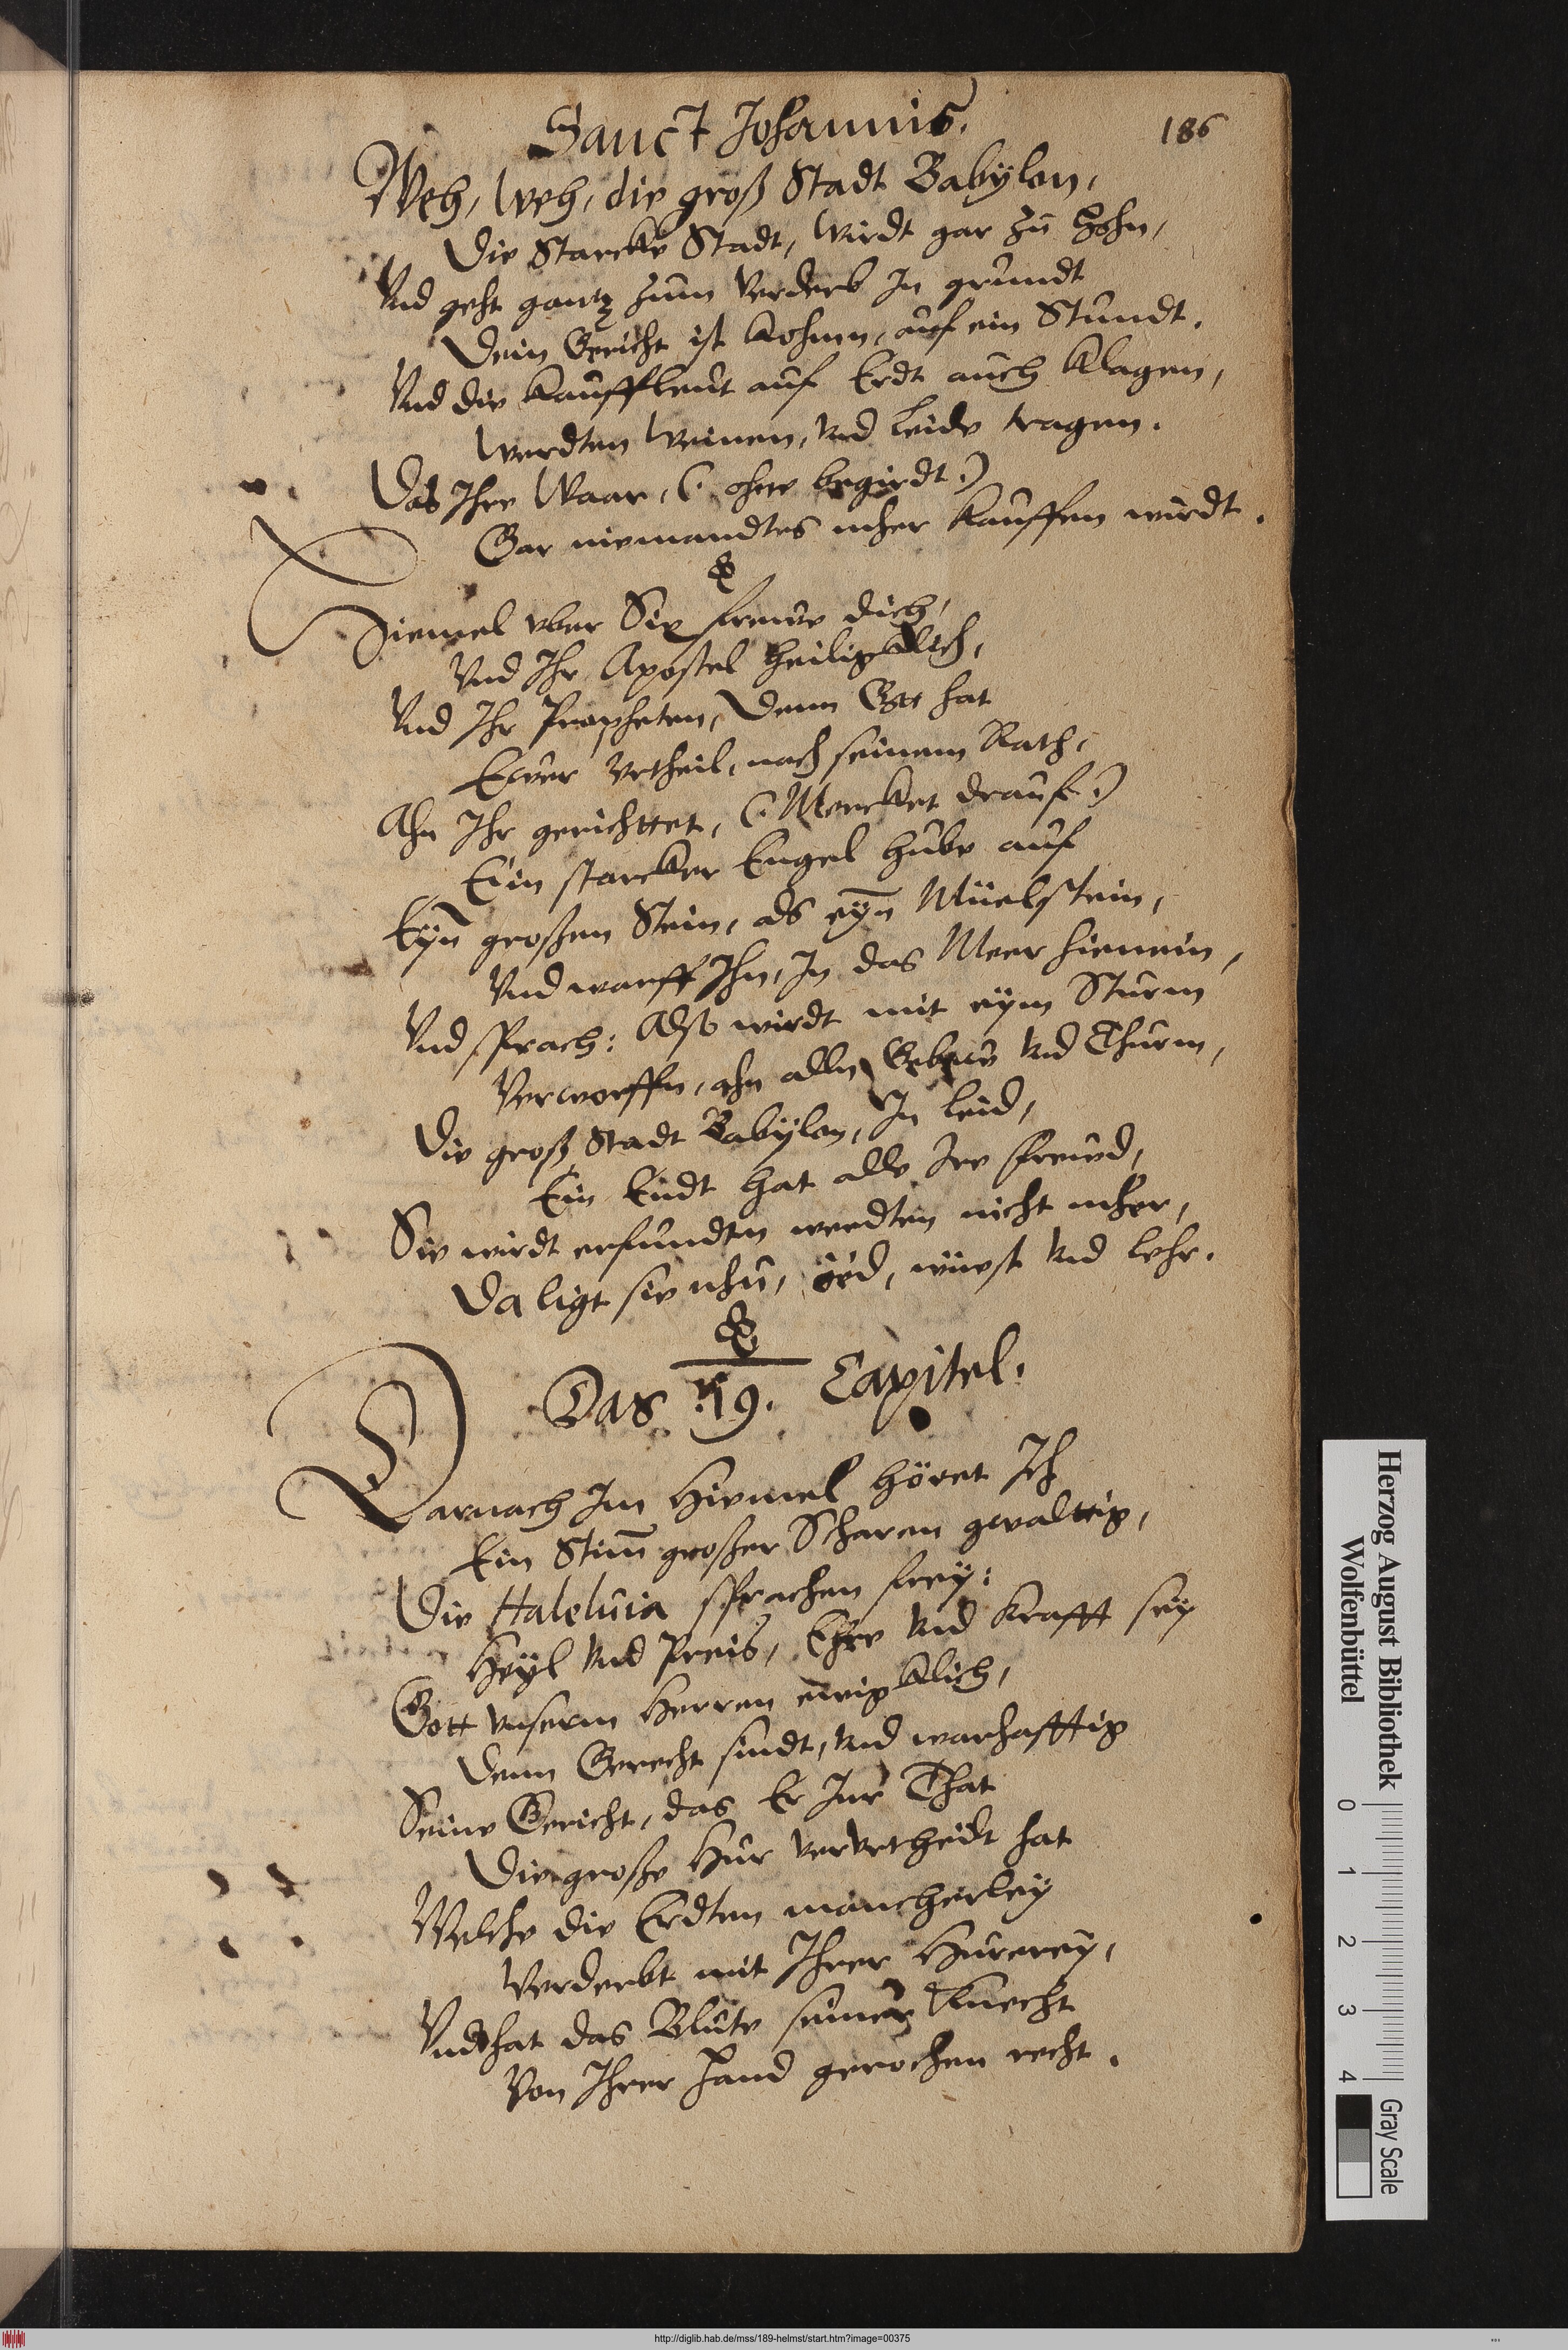 Sanct Johannis.
186
Weh, Weh, die groß Stadt Babÿlon,
Die Starcke Stadt, Wirdt gar zů Hohn,
Vnd geht gantz zum Verderb In grundt
Dein Gericht ist Kohmen, auf ein Stundt.
Vnd die Kauffleut auf Erdt auch Klagen,
Werdten Weinen, vnd Leide tragen.
Das Ihre Waar, (. ohne begirdt.)
Gar niemandtes mher Kauffen wirdt.
Hiemel vber Sie frewe dich,
Vnd Ihr Apostel Heiligklich,
Vnd Ihr Propheten, Denn Gott hat
Ewer Vrtheil, nach seinem Rath,
Ahn Ihr gerichttet, (. Mercket drauf.)
Ein starcker Engel hube auf
Eÿn großen Stein, als eÿn Müelstein,
Vnd warff Ihn, In das Meer hienein,
Vnd sprach: Also wirdt mit eÿm Sturm
Verworffn, ahn alln Gebew vnd Thurm,
Die groß Stadt Babÿlon, In Leid,
Ein Endt hat alle Ire frewd,
Sie wirdt erfundten werdten nicht mher,
Da ligt sie nhů, öed, wüest vnd lehr.
Das .19. Capitel.
Darnach Im Hiemel höret Ich
Ein Stim̄ großer Scharen gwaltig,
Die Haleluia sprachen freÿ:
Heÿl vnd Preis, Ehre vnd Krafft seÿ
Gott vnserm Herren ewigklich,
Denn Gerecht sindt, vnd warhafftig
Seine Gericht, das Er Inr That
Die große Hur vervrtheilt hat
Welche die Erdten mancherleÿ
Verderbt mit Ihrer Hurereÿ,
Vnd hat das Blute seiner Knecht
Von Ihrer Hand gerochen recht.
Herzog August Bibliothek
Wolfenbüttel
0 1 2 3 4
Gray Scale
http://diglib.hab.de/mss/189-helmst/start.htm?image=00375